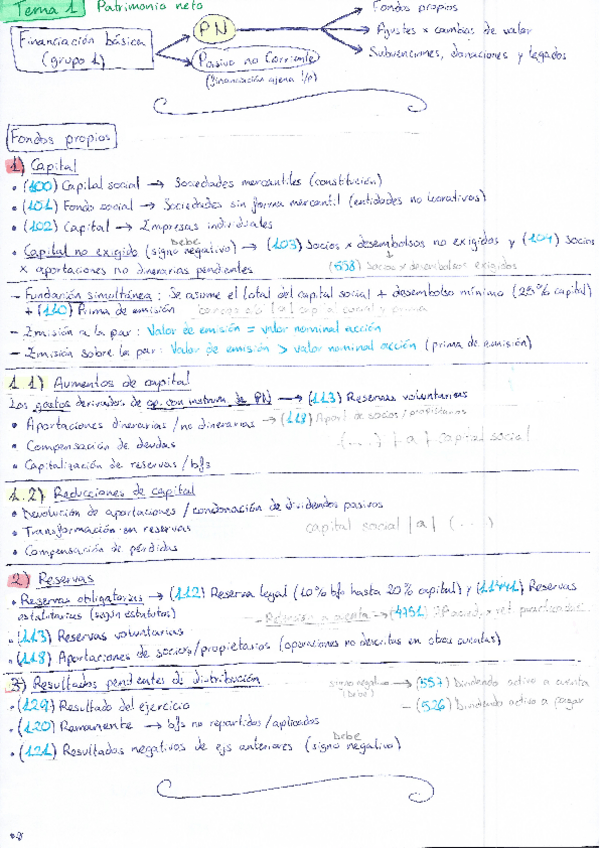 Tema 1 Patrimonio neto
Financiación básica (grupo 1)
PN
Pasivo no Corriente
(financiación ajena l/p)
Fondos propios
Ajustes x cambios de valor
Subvenciones, donaciones y legados
Fondos propios
1) Capital
• (100) Capital social → Sociedades mercantiles (constitución)
• (101) Fondo social → Sociedades sin forma mercantil (entidades no lucrativas)
• (102) Capital → Empresas individuales
Debe
• Capital no exigido (signo negativo) → (103) Socios x desembolsos no exigidos y (104) Socios
x aportaciones no dinerarias pendientes
(558) Socios x desembolsos exigidos
- Fundación simultánea: Se asume el total del capital social + desembolso mínimo (25% capital)
+ (110) Prima de emisión
- Emisión a la par: Valor de emisión = valor nominal acción
- Emisión sobre la par: Valor de emisión > valor nominal acción (prima de emisión)
1.1) Aumentos de capital
Los gastos derivados de op. con instrum. de PN → (113) Reservas voluntarias
• Aportaciones dinerarias / no dinerarias → (118) Aport de socios / propietarios
• Compensación de deudas
(...) } a } capital social
• Capitalización de reservas / bfs
1.2) Reducciones de capital
• Devolución de aportaciones / condonación de dividendos pasivos
• Transformación en reservas
capital social | a | (...)
• Compensación de pérdidas
2) Reservas
• Reservas obligatorias → (112) Reserva legal (10% bfo hasta 20% capital) y (1141) Reservas
estatutarias (según estatutos)
(4751)
• (113) Reservas voluntarias
• (118) Aportaciones de socios/propietarios (operaciones no descritas en otras cuentas)
3) Resultados pendientes de distribución
signo negat (Debe) → (557) Dividendo activo a cuenta
• (129) Resultado del ejercicio
- (526) Dividendo activo a pagar
• (120) Remanente → bfs no repartidos/aplicados
Debe
• (121) Resultados negativos de ejs anteriores (signo negativo)